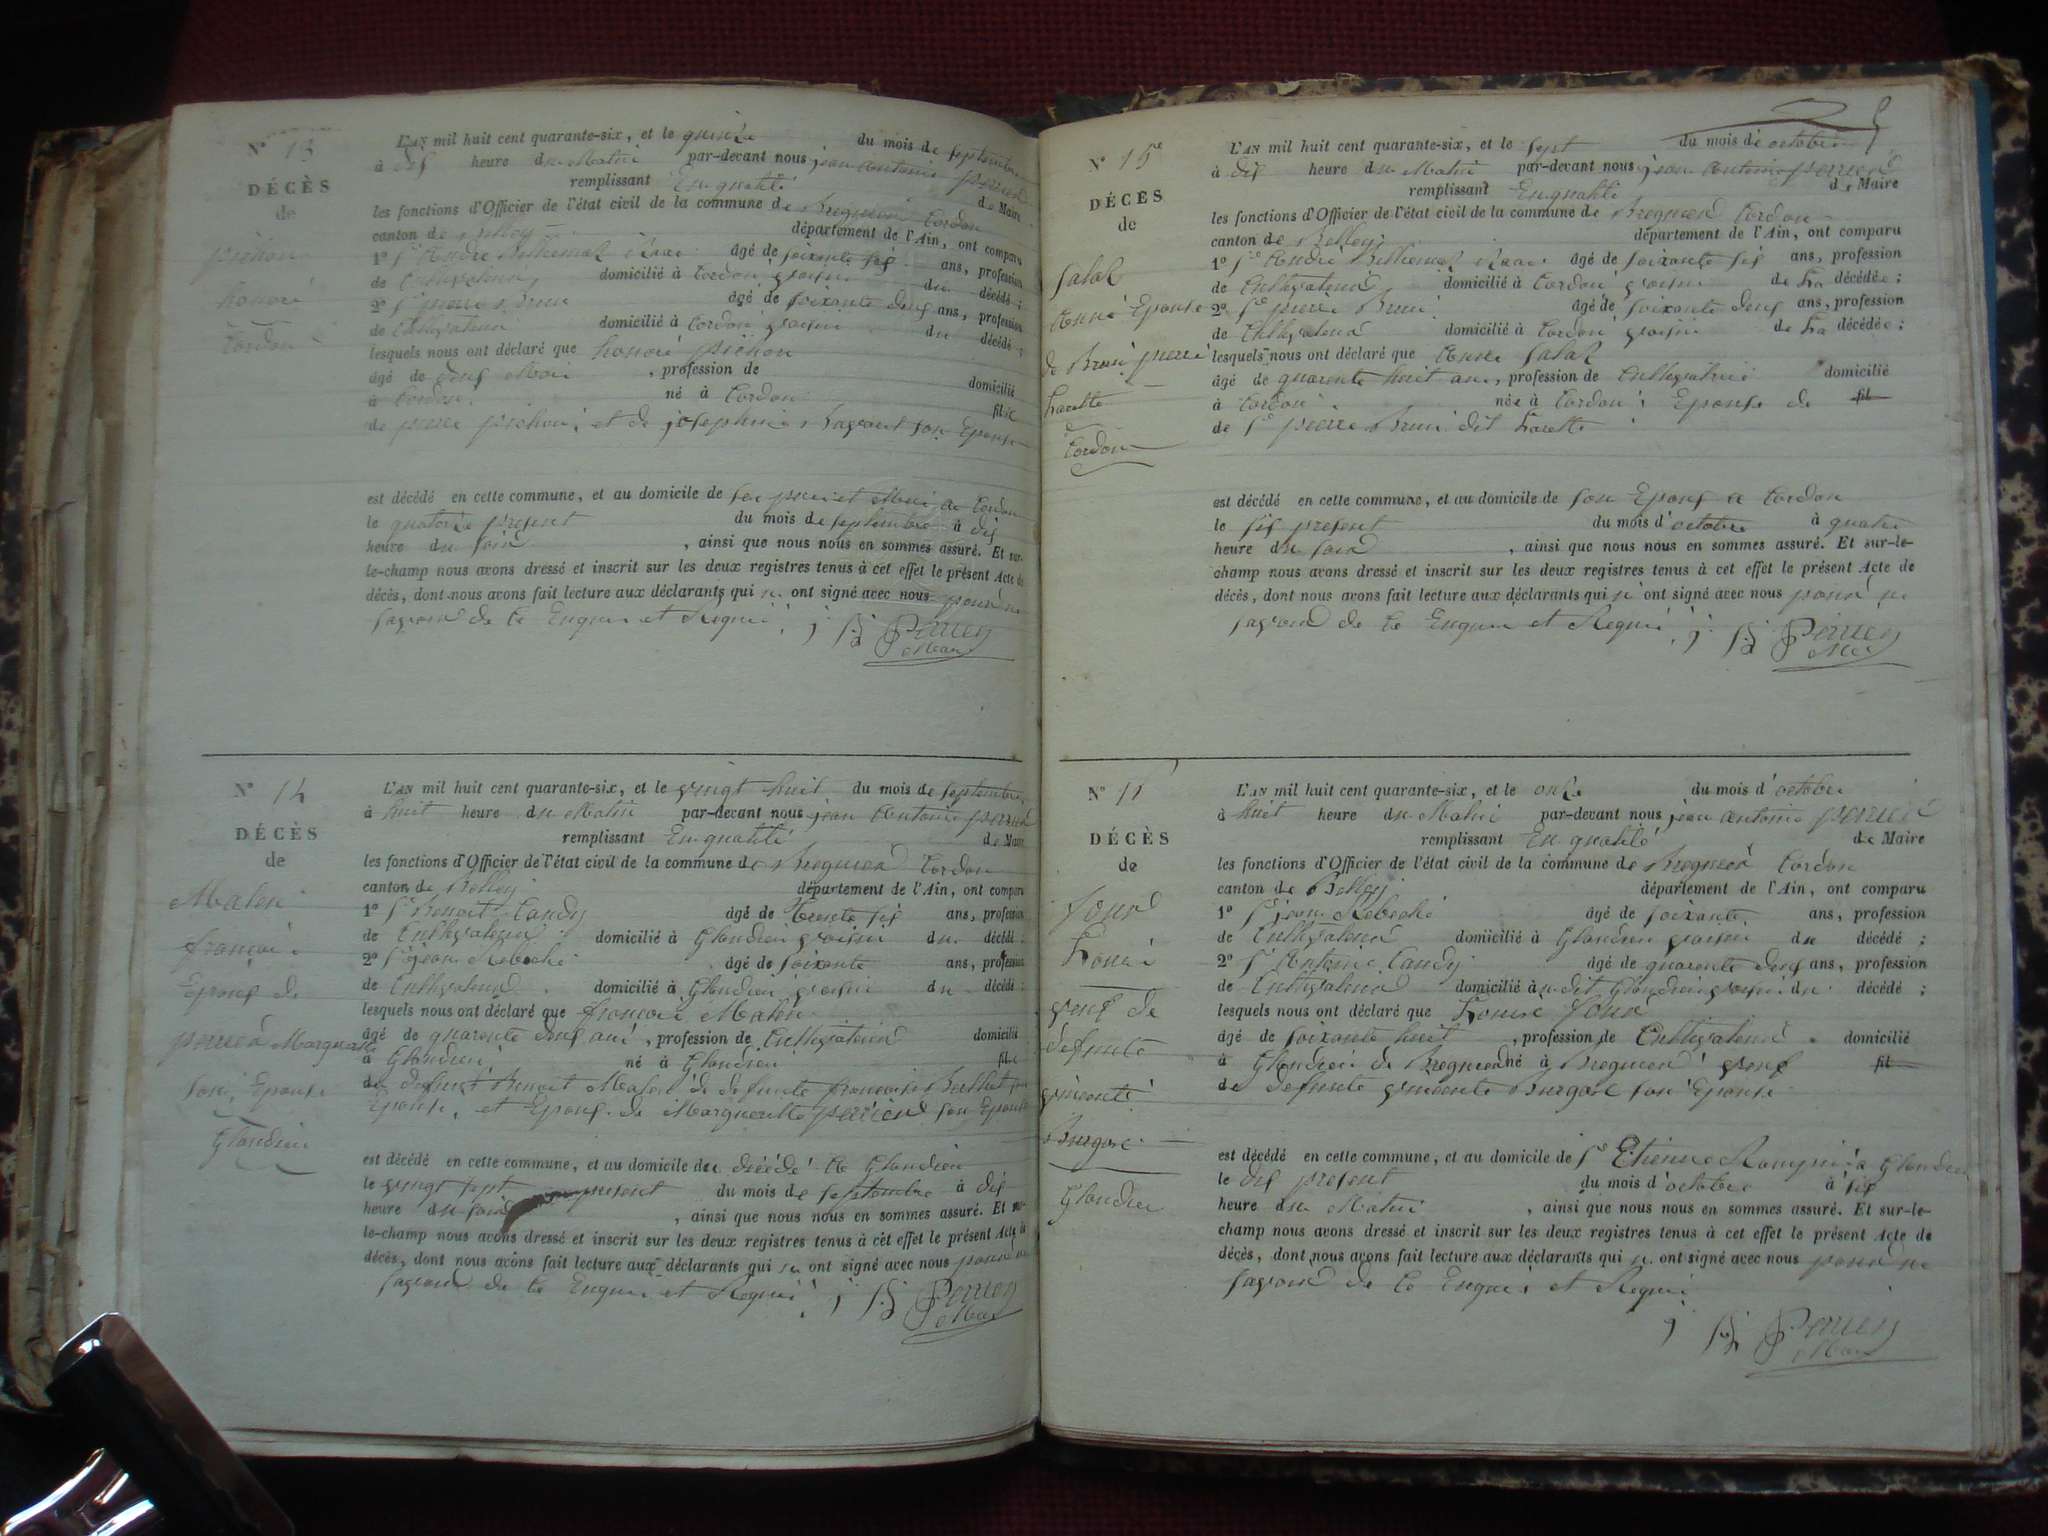 N° 13
DÉCÈS
de
pichon
honoré
Cordon
L'AN mil huit cent quarante-six, et le quinze du mois de septembre
à dix heure du Matin par-devant nous jean Antoine perrier
remplissant En qualité de Maire
les fonctions d'Officier de l'état civil de la commune de Bregnier Cordon
canton de Belley département de l'Ain, ont comparu
1° Sr André Bithemat âgé de soixante six ans, profession
de Cultivateur domicilié à Cordon voisin du décédé ;
2° Sr pierre Brun âgé de soixante deux ans, profession
de Cultivateur domicilié à Cordon voisin du décédé ;
lesquels nous ont déclaré que honoré pichon
âgé de deux Moi , profession de domicilié
à Cordon né à Cordon fils
de pierre pichon et de josephine son Epouse
est décédé en cette commune, et au domicile de ses père et Mère à Cordon
le quatorze présent du mois de septembre à dix
heure du soir , ainsi que nous nous en sommes assuré. Et sur-
le-champ nous avons dressé et inscrit sur les deux registres tenus à cet effet le présent Acte de
décès, dont nous avons fait lecture aux déclarants qui n' ont signé avec nous pour ne
savoir de ce Enquis et Requis j Perrier
Maire
N° 14
DÉCÈS
de
Maleni
françois
Epoux de
perrier Marguerite
son Epouse
Glandieu
L'AN mil huit cent quarante-six, et le vingt huit du mois de septembre
à huit heure du Matin par-devant nous jean Antoine perrier
remplissant En qualité de Maire
les fonctions d'Officier de l'état civil de la commune de Bregnier Cordon
canton de Belley département de l'Ain, ont comparu
1° Sr Benoit Candy âgé de Trente six ans, profession
de Cultivateur domicilié à Glandieu voisin du décédé ;
2° Sr jean Rebechi âgé de soixante ans, profession
de Cultivateur domicilié à Glandieu voisin du décédé ;
lesquels nous ont déclaré que françois Maleni
âgé de quarente deux ans , profession de Cultivateur domicilié
à Glandieu né à Glandieu fils
de defunt Benoit Maleni & de defunte françoise Berthet son
Epouse, et Epoux de Marguerite perrier son Epouse
est décédé en cette commune, et au domicile du décédé à Glandieu
le vingt sept présent du mois de septembre à dix
heure du soir , ainsi que nous nous en sommes assuré. Et sur-
le-champ nous avons dressé et inscrit sur les deux registres tenus à cet effet le présent Acte de
décès, dont nous avons fait lecture aux déclarants qui n' ont signé avec nous pour ne
savoir de ce Enquis et Requis j Perrier
Maire
N° 15e
DÉCÈS
de
Salaz
Anne Epouse
de Brun pierre
Cordon
L'AN mil huit cent quarante-six, et le sept du mois de octobre
à dix heure du Matin par-devant nous jean Antoine perrier
remplissant En qualité de Maire
les fonctions d'Officier de l'état civil de la commune de Bregnier Cordon
canton de Belley département de l'Ain, ont comparu
1° Sr André Bithemat âgé de soixante six ans, profession
de Cultivateur domicilié à Cordon voisin de La décédée ;
2° Sr pierre Brun âgé de soixante deux ans, profession
de Cultivateur domicilié à Cordon voisin de La décédée ;
lesquels nous ont déclaré que Anne Salaz
âgé de quarente huit ans, profession de Cultivatrice domicilié
à Cordon née à Cordon Epouse de fil
de Sr pierre Brun dit
est décédé en cette commune, et au domicile de son Epoux à Cordon
le six présent du mois d'octobre à quatre
heure du soir , ainsi que nous nous en sommes assuré. Et sur-le-
champ nous avons dressé et inscrit sur les deux registres tenus à cet effet le présent Acte de
décès, dont nous avons fait lecture aux déclarants qui n' ont signé avec nous pour ne
savoir de ce Enquis et Requis j Perrier
Maire
N° 16
DÉCÈS
de
Jour
Louis
veuf de
défunte
Burgat
Glandieu
L'AN mil huit cent quarante-six, et le onze du mois d'octobre
à huit heure du Matin par-devant nous jean Antoine perrier
remplissant En qualité de Maire
les fonctions d'Officier de l'état civil de la commune de Bregnier Cordon
canton de Belley département de l'Ain, ont comparu
1° Sr jean Rebechi âgé de soixante ans, profession
de Cultivateur domicilié à Glandieu voisin du décédé ;
2° Sr Antoine Candy âgé de quarente deux ans, profession
de Cultivateur domicilié à u dit Glandieu voisin du décédé ;
lesquels nous ont déclaré que Louis Jour
âgé de soixante huit , profession de Cultivateur domicilié
à Glandieu de Bregnier né à Bregnier veuf fil
de defunte Burgat son Epouse
est décédé en cette commune, et au domicile de Sr Etienne à Glandieu
le dix présent du mois d'octobre à six
heure du Matin , ainsi que nous nous en sommes assuré. Et sur-le-
champ nous avons dressé et inscrit sur les deux registres tenus à cet effet le présent Acte de
décès, dont nous avons fait lecture aux déclarants qui n' ont signé avec nous pour ne
savoir de ce Enquis et Requis
j Perrier
Maire